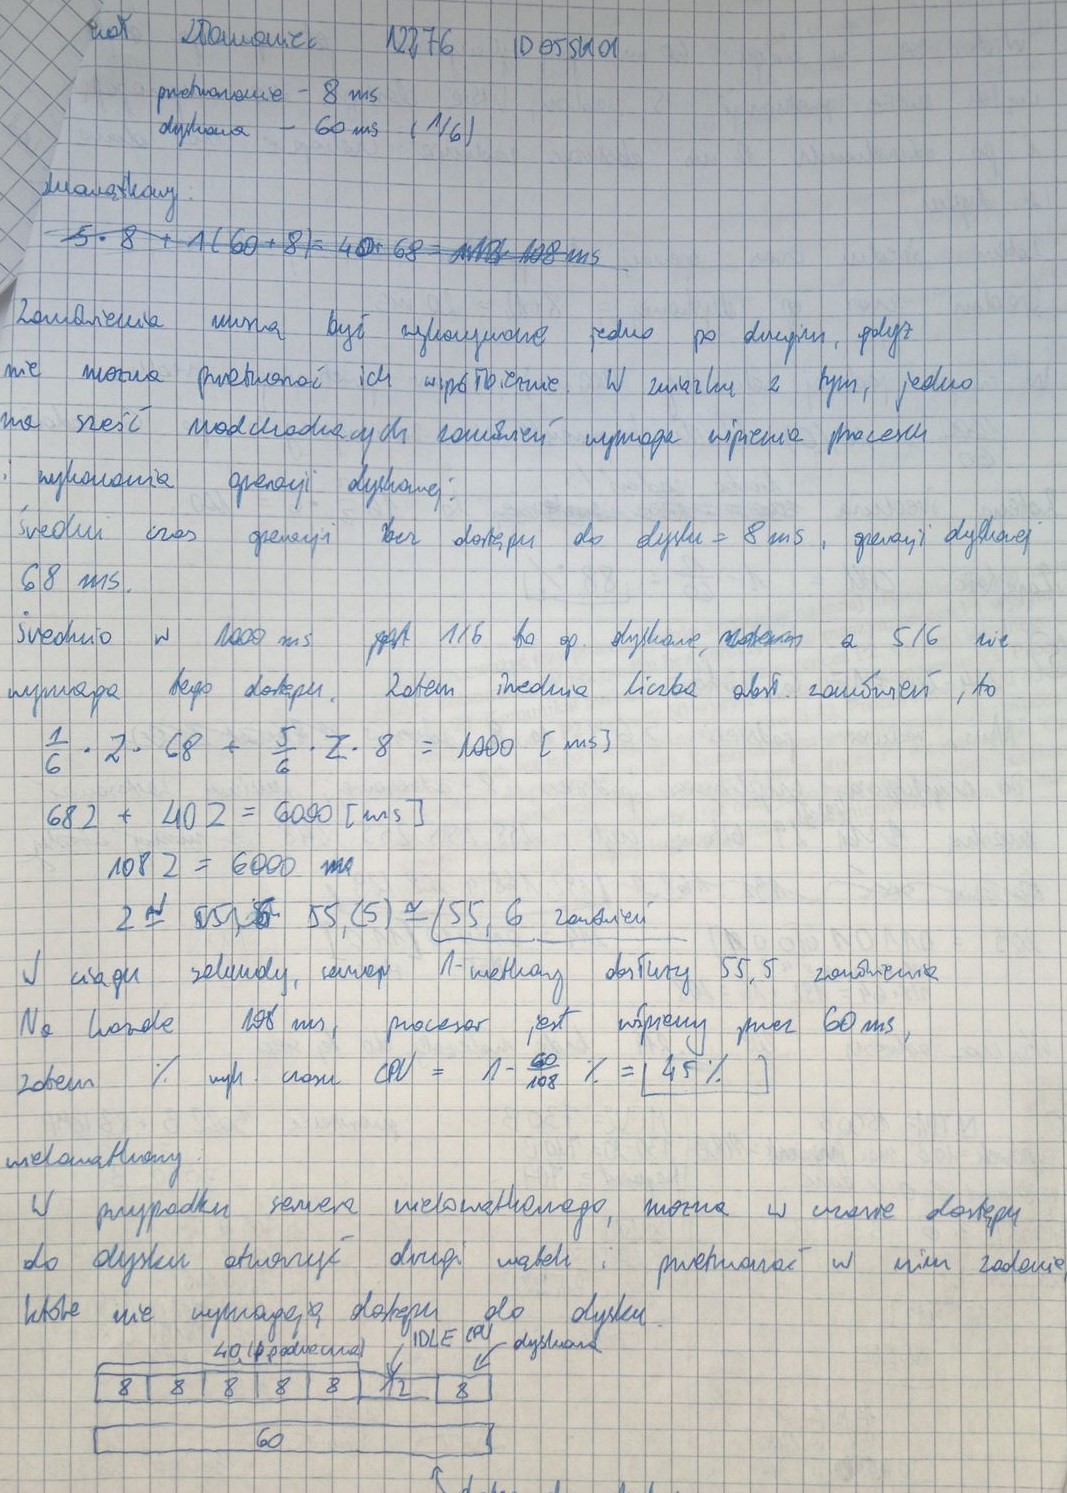 12276
przetwarzanie - 8 ms
dyskowa - 60 ms (1/6)
5 · 8 + 1(60 + 8) = 40 + 68 = 108 ms
Zamówienia muszą być wykonywane jedno po drugim, gdyż
nie można przetwarzać ich współbieżnie. W związku z tym, jedno
na sześć nadchodzących zamówień wymaga uśpienia procesu
i wykonania operacji dyskowej.
Średni czas operacji bez dostępu do dysku = 8 ms, operacji dyskowej
68 ms.
Średnio w 1000 ms 1/6 to op. dyskowe, a 5/6 nie
wymaga tego dostępu. Zatem średnia liczba obsł. zamówień, to
1/6 · Z · 68 + 5/6 · Z · 8 = 1000 [ms]
68Z + 40Z = 6000 [ms]
108Z = 6000 ms
Z ≃ 55,(5) ≃ 55,6 zamówień
W ciągu sekundy, serwer 1-wątkowy obsłuży 55,5 zamówienia
Na każde 108 ms, procesor jest uśpiony przez 60 ms,
zatem % wyk. czasu CPU = 1 - 60/108 % = 45%
wielowątkowy.
W przypadku serwera wielowątkowego, można w czasie dostępu
do dysku otworzyć drugi wątek i przetwarzać w nim zadania,
które nie wymagają dostępu do dysku.
40 IDLE CPU dyskowa
8 8 8 8 8 12 8
60